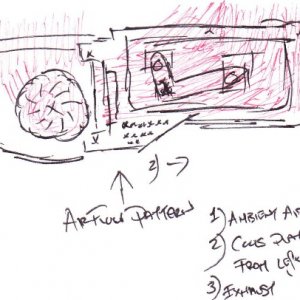 2) →
AIRFLOW PATTERN
1) AMBIENT AIR
2) COOLS
FROM LEFT
3) EXHAUST